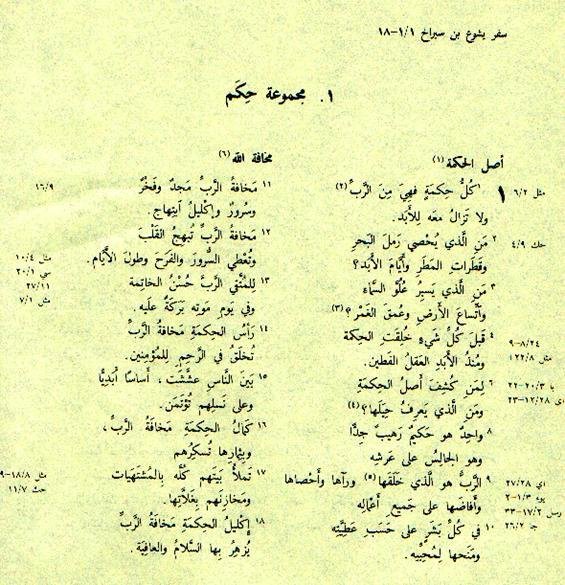 سفر يشوع بن سيراخ ١/١-١٨
١. مجموعة حِكَم
أصل الحكمة (١)
١ ١كُلُّ حِكمَةٍ فهِيَ مِنَ الرَّبِّ (٢)
ولا تَزالُ معَه لِلأَبَد.
٢ مَنِ الَّذي يُحْصي رَملَ البَحرِ
وقَطَراتِ المَطَرِ وأَيَّامَ الأَبَد؟
٣ مَنِ الَّذي يَسبُرُ عُلُوَّ السَّماءِ
وٱتِّساعَ الأَرضِ وعُمقَ الغَمْر؟ (٣)
٤ قَبلَ كُلِّ شَيءٍ خُلِقَتِ الحِكمة
ومُنذُ الأَبَدِ العَقلُ الفَطين.
٦ لِمَن كُشِفَ أَصلُ الحِكمَةِ
ومَنِ الَّذي يَعرِفُ حِيَلَها؟ (٤)
٨ واحِدٌ هو حَكيمٌ رَهيبٌ جِدًّا
وهو الجالِسُ على عَرشِه
٩ الرَّبُّ هو الَّذي خَلَقَها (٥) ورآها وأَحْصاها
وأَفاضَها على جَميعِ أَعْمالِه
١٠ في كُلِّ بَشَرٍ على حَسَبِ عَطِيَّتِه
ومَنَحَها لِمُحِبِّيه.
مثل ٦/٢
حك ٤/٩
٨/٢٤-٩
مثل ١٢٢/٨
با ٢٠/٣-٢٢
١٢/٢٨-٢٣
اي ٢٧/٢٨
يوء ١/٣-٢
رسل ١٧/٢-٣٣
٢٦/٢
مخافة الله (٦)
١١ مَخافَةُ الرَّبِّ مَجدٌ وفَخْرٌ
وسُرورٌ وإِكْليلُ ٱبتِهاج.
١٢ مَخافَةُ الرَّبِّ تُبهِجُ القَلْبَ
وتُعْطي السُّرورَ والفَرَحَ وطولَ الأَيَّام.
١٣ لِلمُتَّقي الرَّبِّ حُسْنُ الخاتِمة
وفي يَومِ مَوتِه بَرَكَةٌ علَيه.
١٤ رَأسُ الحِكمَةِ مَخافَةُ الرَّبِّ
تُخلَقُ في الرَّحِمِ لِلمُؤمِنين.
١٥ بَينَ النَّاسِ عَشَّشَت، أَساسًا أَبَدِيًّا
وعلى نَسلِهم تُؤتَمَن.
١٦ كَمالُ الحِكمَةِ مَخافَةُ الرَّبِّ،
وبِثِمارِها تُسكِرُهم
١٧ تَملأُ بَيتَهم كُلَّه بِالمُشتَهَيات
ومَخازِنَهم بِغَلاَّتِها.
١٨ إِكْليلُ الحِكمَةِ مَخافَةُ الرَّبِّ
يُزهِرُ بِها السَّلامُ والعافِيَة.
١٦/٩
مثل ١٠/٤
سي ٢٠/١
٢٧/١١
مثل ٧/١
مثل ١٨/٨-٩
حث ١١/٧